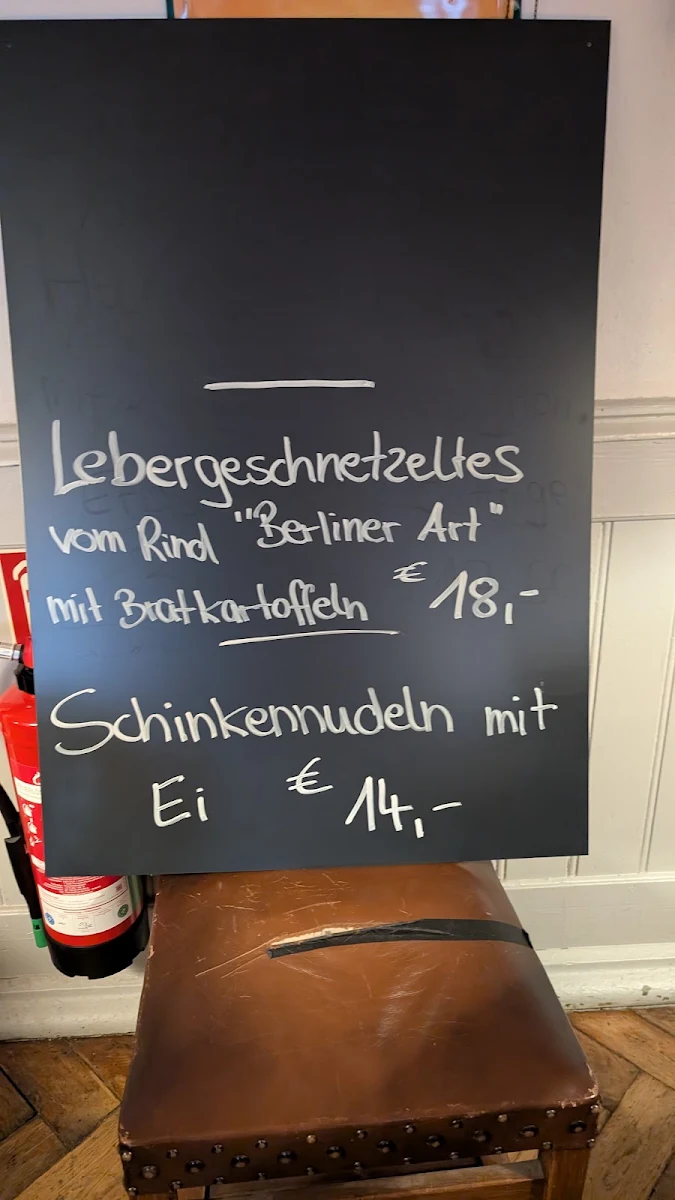 Lebergeschnetzeltes
vom Rind "Berliner Art"
mit Bratkartoffeln € 18,-
Schinkennudeln mit
Ei € 14,-